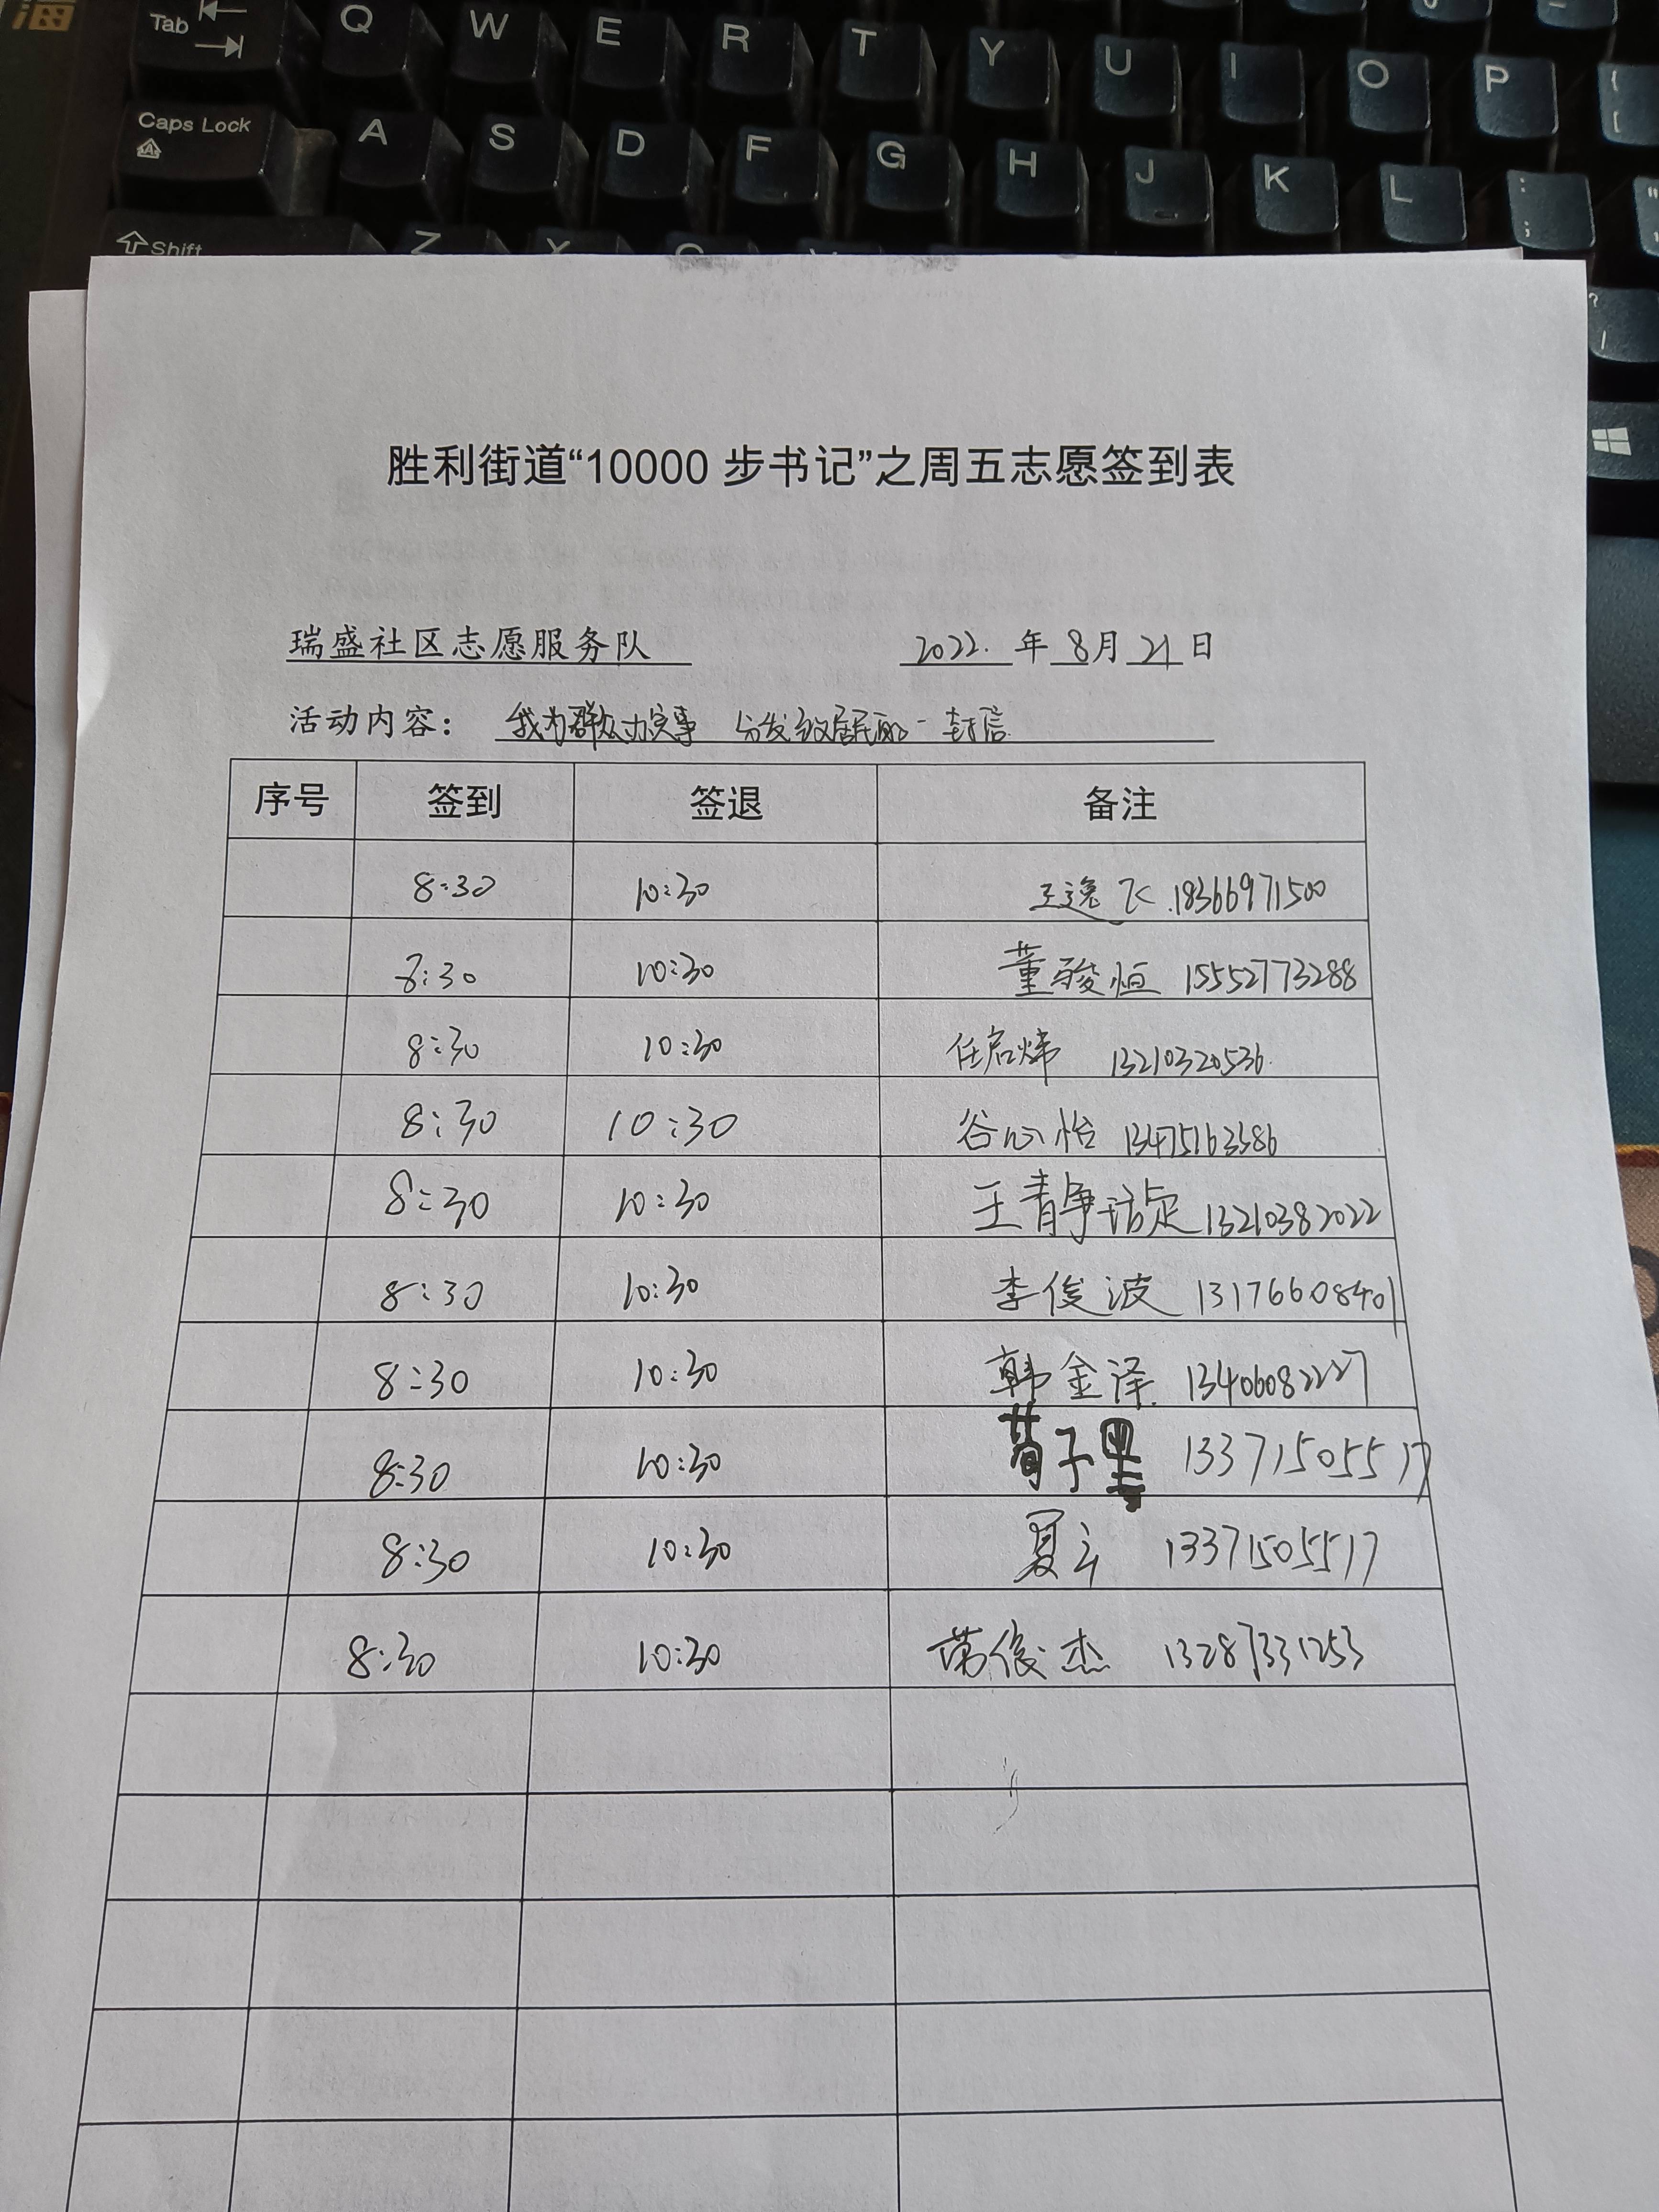 Tab Q W E R T Y U I O P { [
Caps Lock A S D F G H J K L : ;
Shift Z X
胜利街道“10000 步书记”之周五志愿签到表
瑞盛社区志愿服务队 2022. 年 8月 21 日
活动内容： 我为群众办实事 分发致居民的一封信
序号 签到 签退 备注
8:30 10:30 王逸飞 18366971500
8:30 10:30 董骏恒 15552773288
8:30 10:30 任启炜 13210320536
8:30 10:30 谷心怡 13475163586
8:30 10:30 王青 13210382022
8:30 10:30 李俊波 13176608401
8:30 10:30 韩金泽 13406082227
8:30 10:30 荀子墨 13371505517
8:30 10:30 夏 13371505517
8:30 10:30 俊杰 13287331253